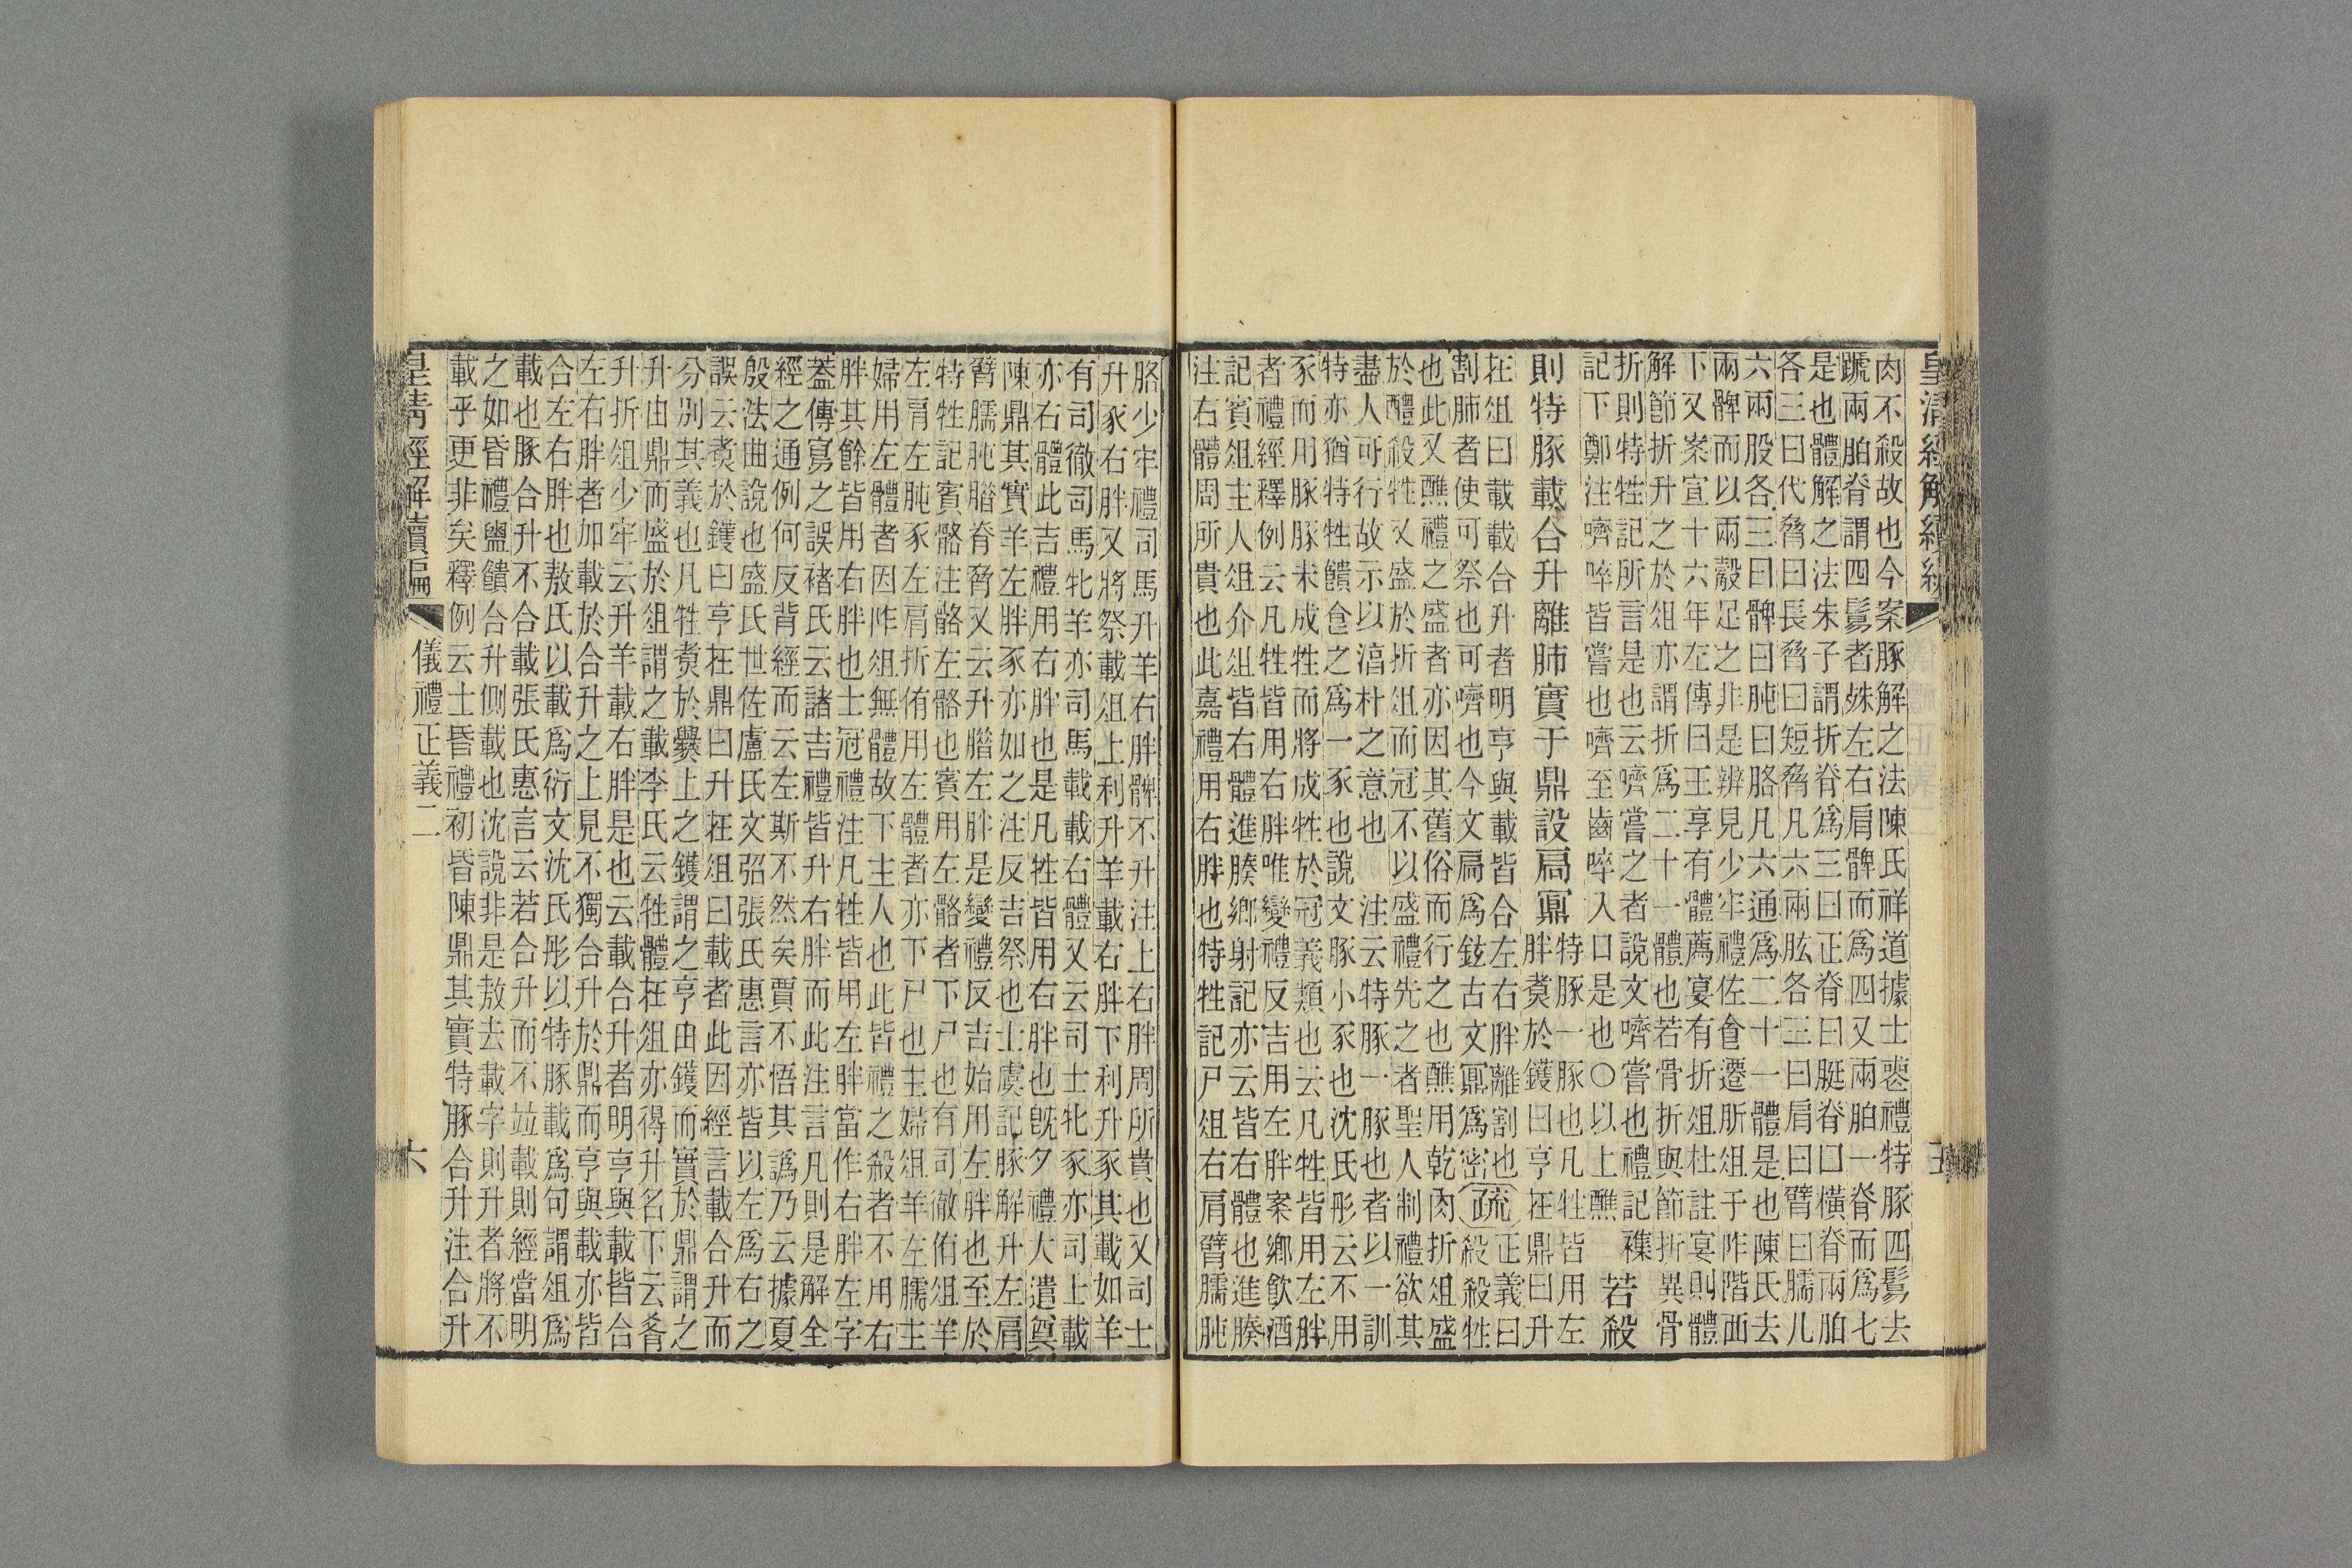 皇清經解續編
肉不殺故也今案豚解之法陳氏祥道據士喪禮特豚四鬄去
蹏兩胉脊謂四鬄者殊左右肩髀而爲四又兩胉一脊而爲七
是也體解之法朱子謂折脊爲三曰正脊曰脡脊曰橫脊兩胉
各三曰代脅曰長脅曰短脅凡六兩肱各三曰肩曰臂曰臑凡
六兩股各三曰髀曰肫曰胳凡六通爲二十一體是也陳氏去
兩髀而以兩觳足之非是辨見少牢禮佐食遷肵俎于阼階西
下又案宣十六年左傳曰王享有體薦宴有折俎杜註宴則體
解節折升之於俎亦謂折爲二十一體也若骨折與節折異骨
折則特牲記所言是也云嚌嘗之者說文嚌嘗也禮記襍
記下鄭注嚌啐皆嘗也嚌至齒啐入口是也○以上醮
若殺
則特豚載合升離肺實于鼎設扃鼏
特豚一豚也凡牲皆用左
胖煑於鑊曰亨在鼎曰升
在俎曰載載合升者明亨與載皆合左右胖離割也
割肺者使可祭也可嚌也今文扃爲鉉古文鼏爲密
疏
正義曰
殺殺牲
也此又醮禮之盛者亦因其舊俗而行之也醮用乾肉折俎盛
於醴殺牲又盛於折俎而冠不以盛禮先之者聖人制禮欲其
盡人可行故示以湻朴之意也 注云特豚一豚也者以一訓
特亦猶特牲饋食之爲一豕也說文豚小豕也沈氏彤云不用
豕而用豚豚未成牲而將成牲於冠義類也云凡牲皆用左胖
者禮經釋例云凡牲皆用右胖唯變禮反吉用左胖案鄉飮酒
記賓俎主人俎介俎皆右體進腠鄉射記亦云皆右體也進腠
注右體周所貴也此嘉禮用右胖也特牲記尸俎右肩臂臑肫
胳少牢禮司馬升羊右胖髀不升注上右胖周所貴也又司士
升豕右胖又將祭載俎上利升羊載右胖下利升豕其載如羊
有司徹司馬牝羊亦司馬載載右體又云司士牝豕亦司上載
亦右體此吉禮用右胖也是凡牲皆用右胖也旣夕禮大遣奠
陳鼎其實羊左胖豕亦如之注反吉祭也士虞記豚解升左肩
臂臑肫䐑脊脅又云升䐑左胖是變禮反吉始用左胖也至於
特牲記賓骼注骼左骼也賓用左骼者下尸也有司徹侑俎羊
左肩左肫豕左肩折侑用左體者亦下尸也主婦俎羊左臑主
婦用左體者因阼俎無體故下主人也此皆禮之殺者不用右
胖其餘皆用右胖也士冠禮注凡牲皆用左胖當作右胖左字
蓋傳寫之誤褚氏云諸吉禮皆升右胖而此注言凡則是解全
經之通例何反背經而云左斯不然矣賈不悟其譌乃云據夏
殷法曲說也盛氏世佐盧氏文弨張氏惠言亦皆以左爲右之
誤云煑於鑊曰亨在鼎曰升在俎曰載者此因經言載合升而
分別其義也凡牲煑於爨上之鑊謂之亨由鑊而實於鼎謂之
升由鼎而盛於俎謂之載李氏云牲體在俎亦得升名下云肴
升折俎少牢云升羊載右胖是也云載合升者明亨與載皆合
左右胖者加載於合升之上見不獨合升於鼎而亨與載亦皆
合左右胖也敖氏以載爲衍文沈氏彤以特豚載爲句謂俎爲
載也豚合升不合載張氏惠言云若合升而不竝載則經當明
之如昏禮盥饋合升側載也沈說非是敖去載字則升者將不
載乎更非矣釋例云士昏禮初昏陳鼎其實特豚合升注合升
皇清經解續編
儀禮正義二
六